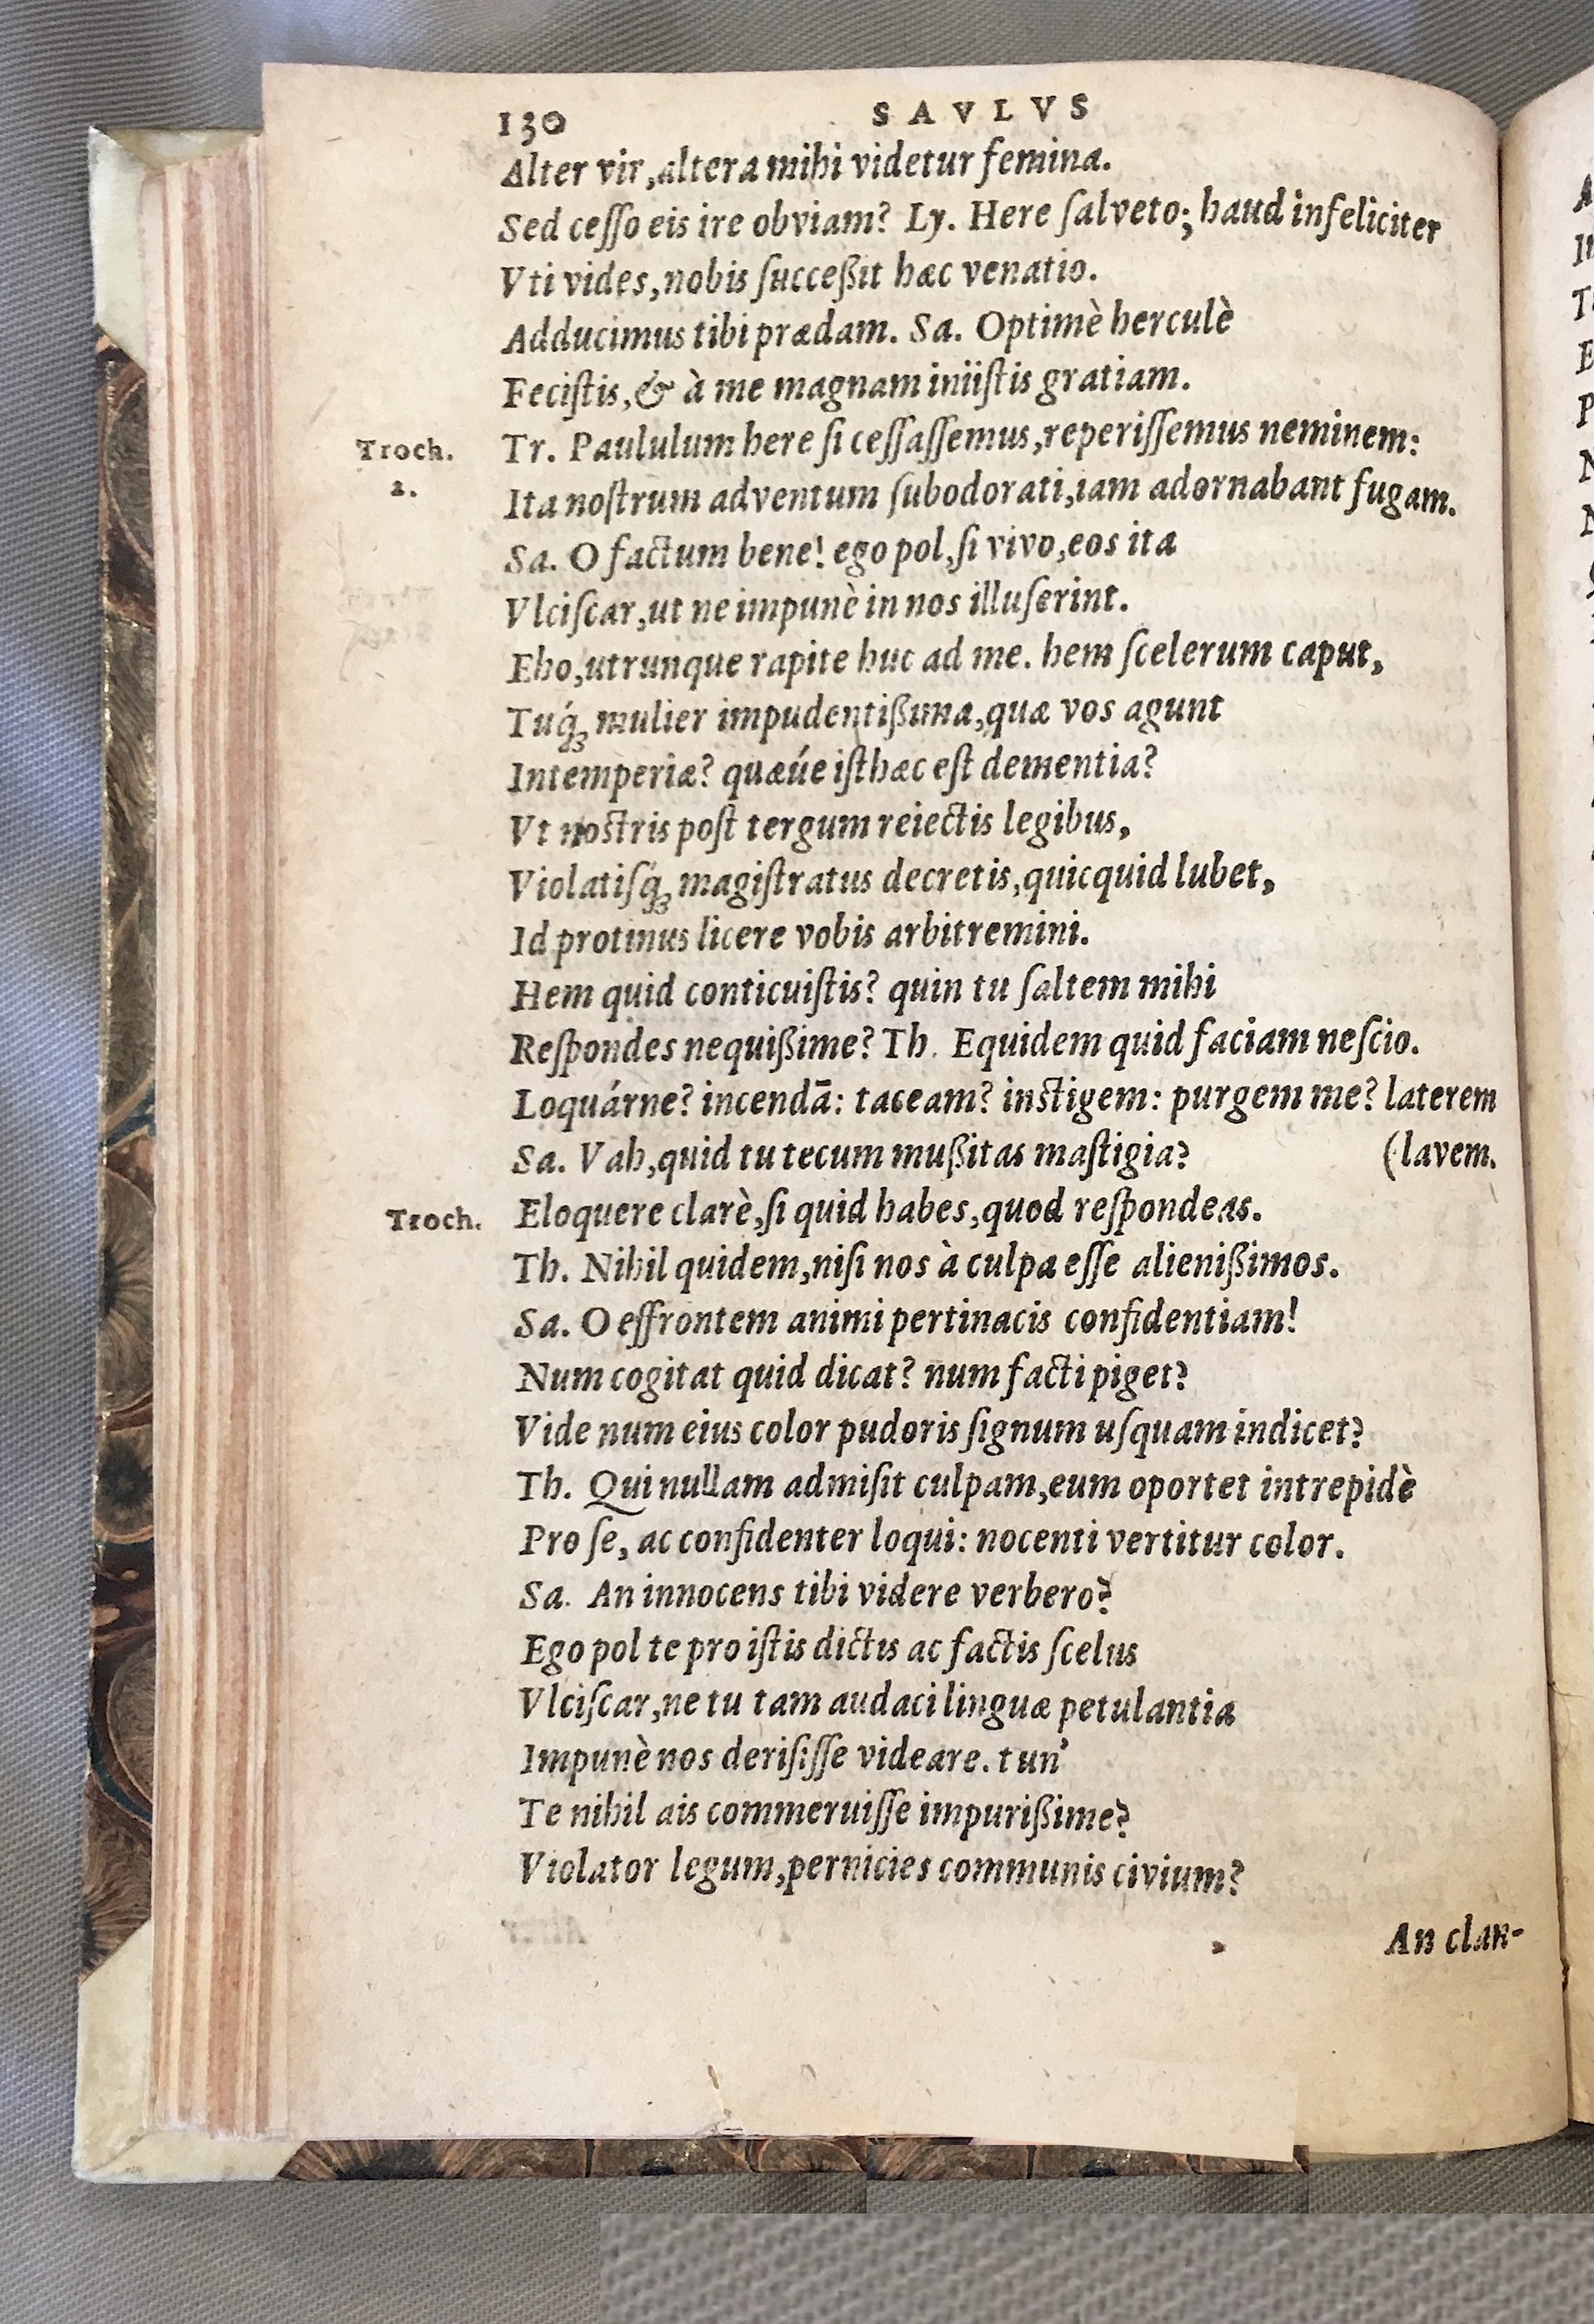 130 SAVLVS
Alter vir, altera mihi videtur femina.
Sed ceſſo eis ire obviam? Ly. Here ſalveto; haud infeliciter
Vti vides, nobis ſucceßit hæc venatio.
Adducimus tibi prædam. Sa. Optimè herculè
Feciſtis, & à me magnam iniiſtis gratiam.
Troch. 2. Tr. Paululum here ſi ceſſaſſemus, reperiſſemus neminem:
Ita noſtrum adventum ſubodorati, iam adornabant fugam.
Sa. O factum bene! ego pol, ſi vivo, eos ita
Vlciſcar, ut ne impunè in nos illuſerint.
Eho, utrunque rapite huc ad me. hem ſcelerum caput,
Tuq́ꝫ mulier impudentißima, quæ vos agunt
Intemperiæ? quæúe iſthæc eſt dementia?
Vt noſtris poſt tergum reiectis legibus,
Violatiſq́ꝫ magiſtratus decretis, quicquid lubet,
Id protinus licere vobis arbitremini.
Hem quid conticuiſtis? quin tu ſaltem mihi
Reſpondes nequißime? Th. Equidem quid faciam neſcio.
Loquárne? incendā: taceam? inſtigem: purgem me? laterem
Sa. Vah, quid tu tecum mußitas maſtigia? (lavem.
Troch. Eloquere clarè, ſi quid habes, quod reſpondeas.
Th. Nihil quidem, niſi nos à culpa eſſe alienißimos.
Sa. O effrontem animi pertinacis confidentiam!
Num cogitat quid dicat? num facti piget?
Vide num eius color pudoris ſignum uſquam indicet?
Th. Qui nullam admiſit culpam, eum oportet intrepidè
Pro ſe, ac confidenter loqui: nocenti vertitur color.
Sa. An innocens tibi videre verbero?
Ego pol te pro iſtis dictis ac factis ſcelus
Vlciſcar, ne tu tam audaci linguæ petulantia
Impunè nos deriſiſſe videare. tun'
Te nihil ais commeruiſſe impurißime?
Violator legum, pernicies communis civium?
An clan-